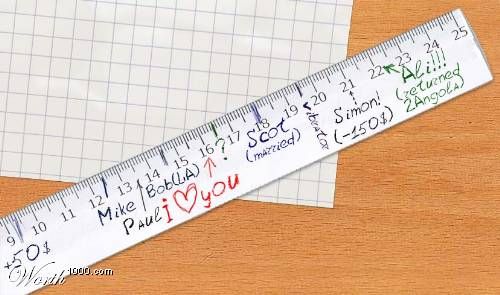 9 10 11 12 13 14 15 16 17 18 19 20 21 22 23 24 25
+50$
Mike
Paul
Bob(LA)
i ♡ you
?
Scot
(married)
Simon!
(-150$)
Ali!!!
(returned
2Angola)
Worth1000.com